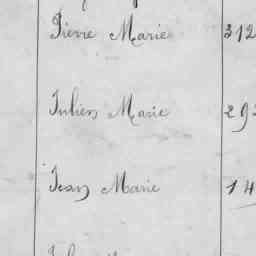 Pierre Marie 312
Julien Marie 29
Jean Marie 14